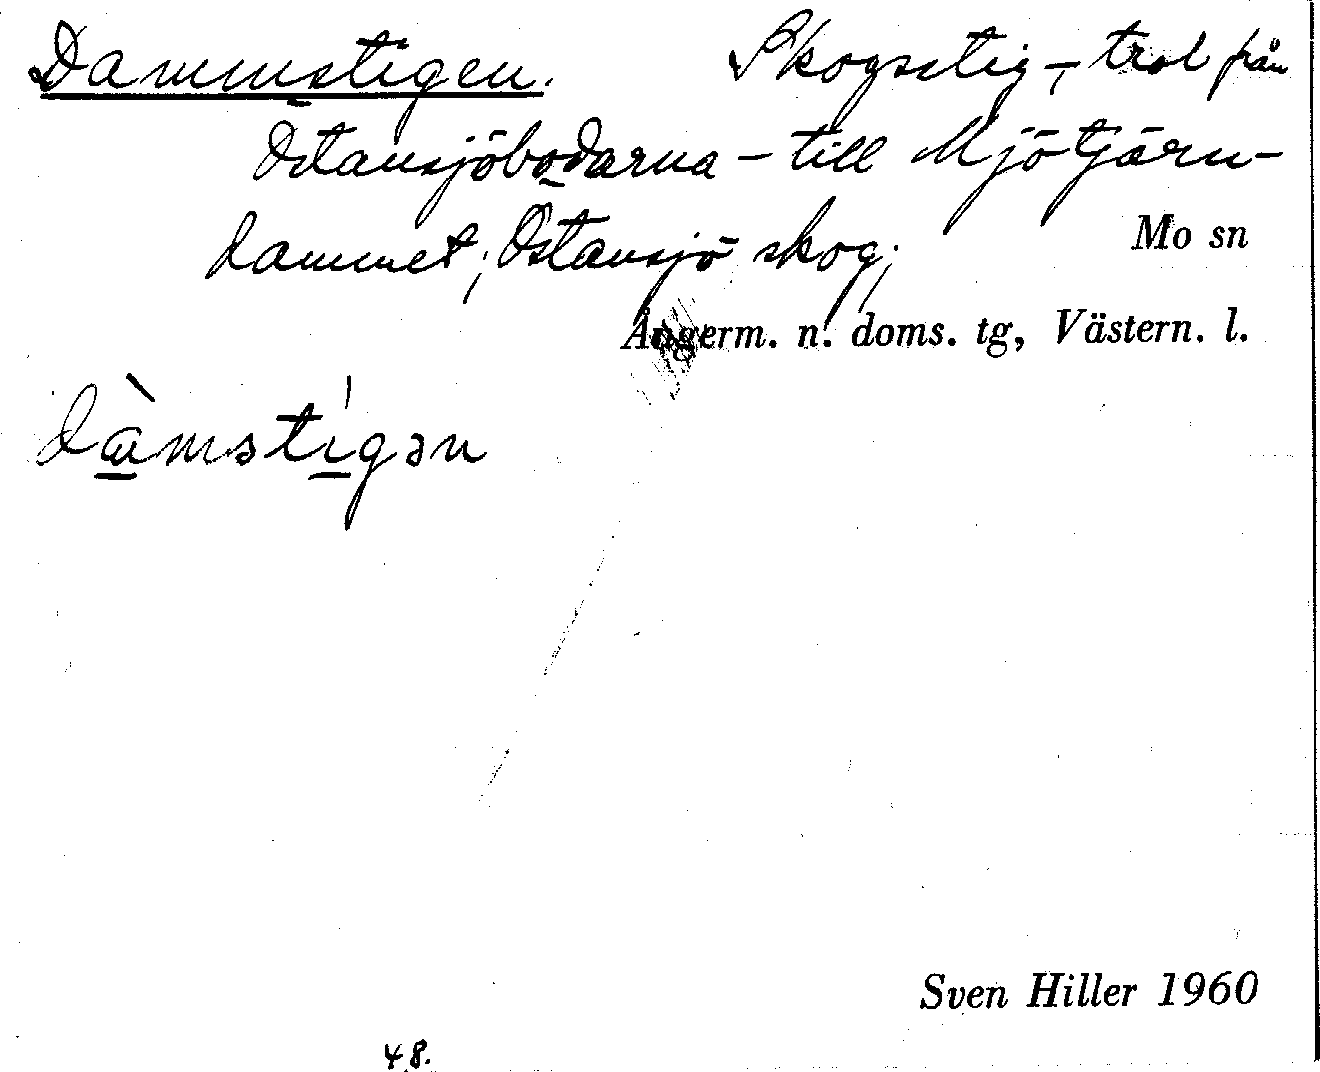 Dammstigen. Skogsstig – trol från
Östansjöbodarna – till Mjötjärn-
dammet; Östansjö skog;
Mo sn
Ångerm. n. doms. tg, Västern. l.
dàmstigən
Sven Hiller 1960
48.